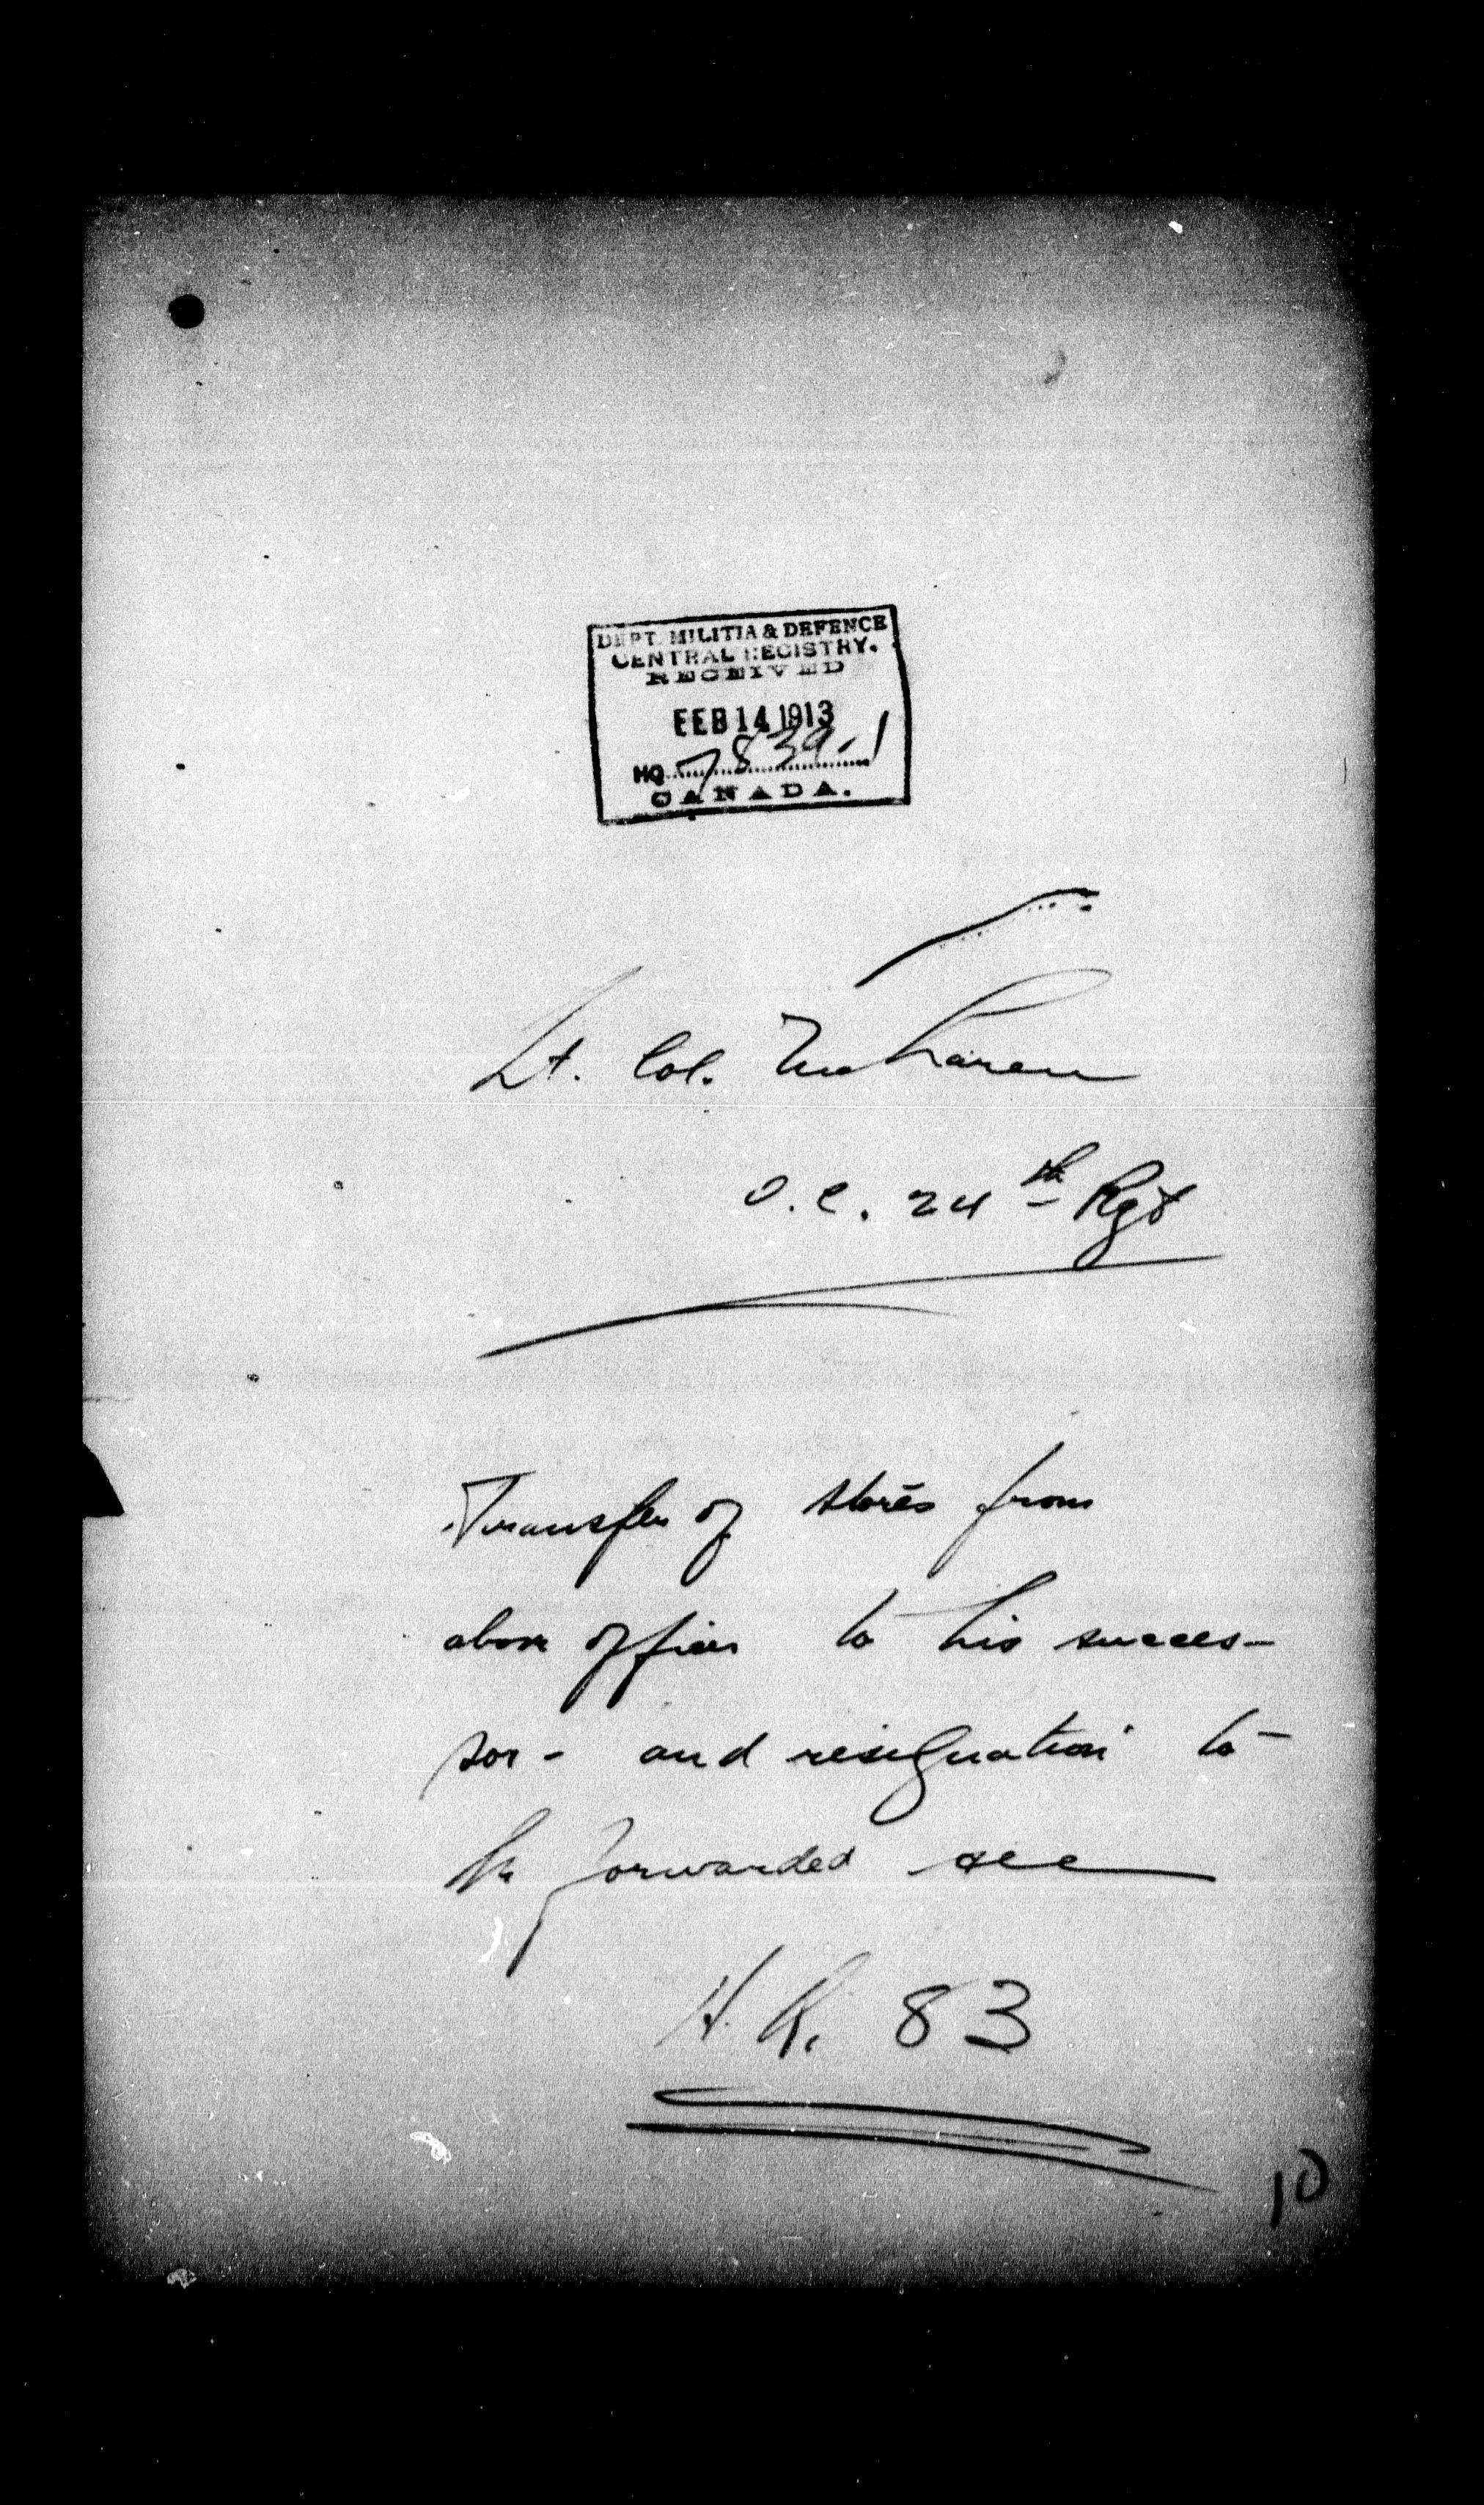 DEPT. MILITIA & DEFENCE
CENTRAL REGISTRY.
RECEIVED
FEB 14 1913
HQ 7839-1
CANADA.
Lt. Col.
O.C. 24th Rgt
Transfer of stores from
above officer to his succes-
sor - and resignation to
be forwarded see
H.R. 83
10